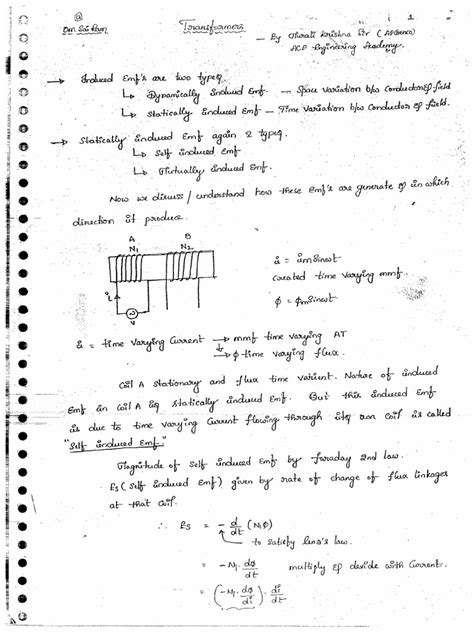 @
Om Sai Ram
Transformers
1
- By Tharati krishna Sir (
ACE Engineering Academy.
→ Induced Emf's are two types.
↳ Dynamically induced Emf. - Space Variation b/w Conductor & field
↳ Statically induced Emf - Time Variation b/w Conductor & field.
→ Statically induced Emf again 2 types.
↳ Self induced Emf
↳ Mutually induced Emf.
Now we discuss / understand how these Emf's are generate & in which
direction it produce.
A B
N1 N2
i
V
i = im sinωt
Created time varying mmf.
ϕ = ϕm sinωt
i = time varying Current → mmf time varying AT
↳ ϕ - time varying flux.
Coil A stationary and flux time varient. Nature of induced
Emf in coil A is statically induced Emf. But this induced Emf
is due to time varying Current flowing through its own Coil is called
"Self induced Emf."
Magnitude of Self induced Emf by faraday 2nd law.
Es (Self induced Emf) given by rate of change of flux linkages
at that Coil.
∴ Es = - d/dt (N1ϕ)
to satisfy lenz's law.
= - N1 . dϕ/dt multiply & divide with Current.
= (- N1 . dϕ/di) . di/dt